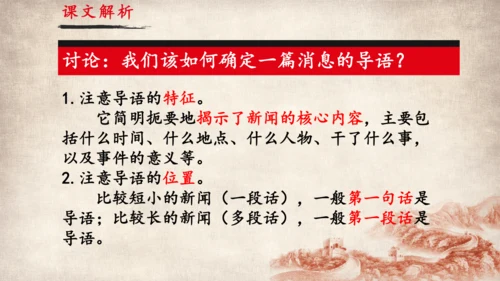 课文解析
讨论：我们该如何确定一篇消息的导语？
1.注意导语的特征。
它简明扼要地揭示了新闻的核心内容，主要包
括什么时间、什么地点、什么人物、干了什么事，
以及事件的意义等。
2.注意导语的位置。
比较短小的新闻（一段话），一般第一句话是
导语；比较长的新闻（多段话），一般第一段话是
导语。